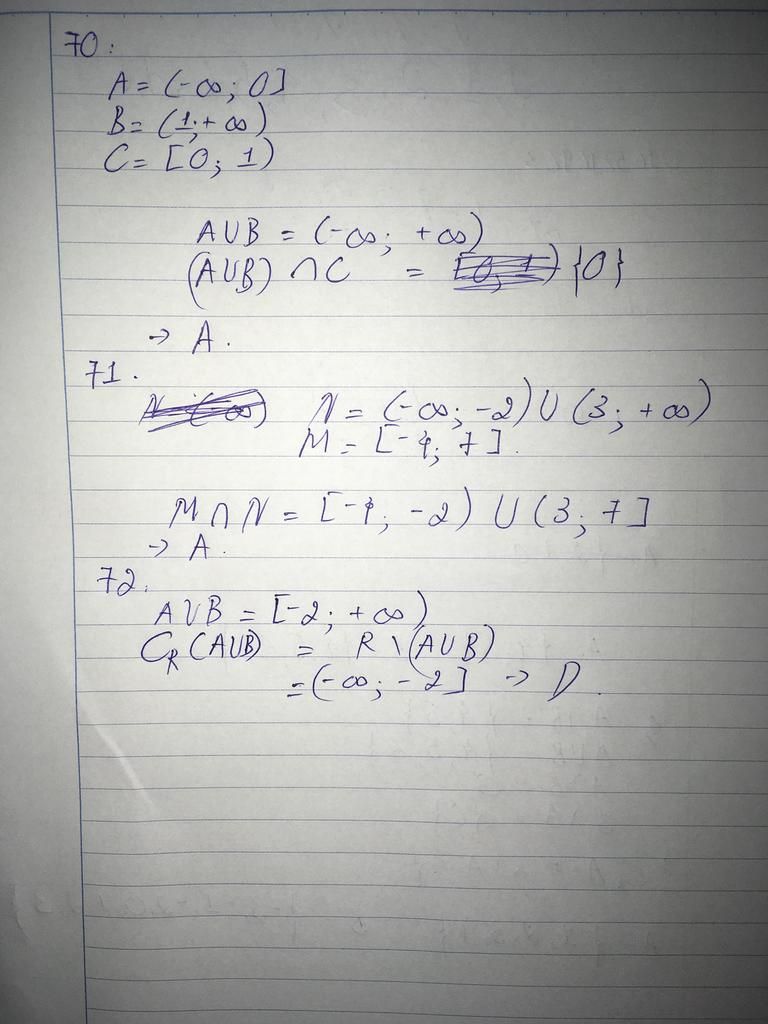 70.
A = (-∞; 0]
B = (1; +∞)
C = [0; 1)
A∪B = (-∞; +∞)
(A∪B) ∩ C = {0}
→ A.
71.
N = (-∞; -2) ∪ (3; +∞)
M = [-4; 7].
M ∩ N = [-4; -2) ∪ (3; 7]
→ A.
72.
A∪B = [-2; +∞)
C_R (A∪B) = R \ (A∪B)
= (-∞; -2] → D.